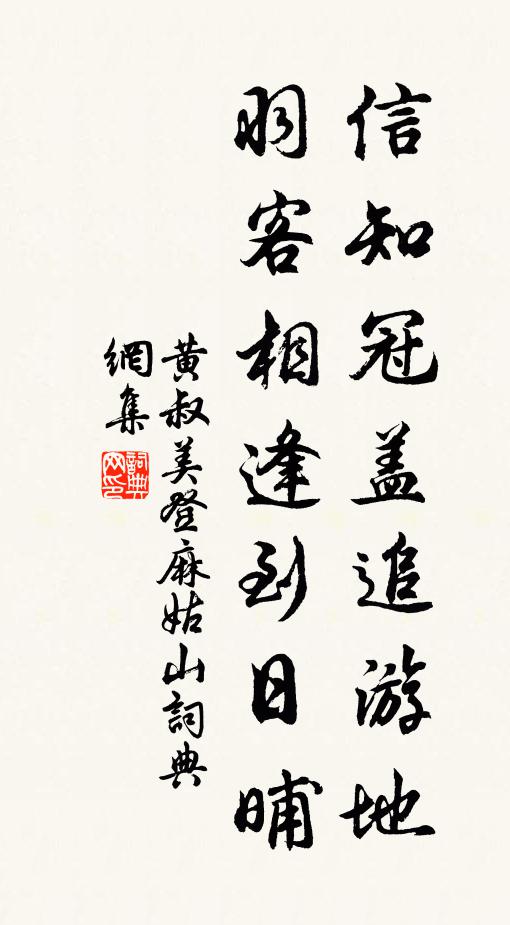 信知冠盖追游地
羽客相逢到日晡
黄叔美登麻姑山詞典
網集
詞典
网印